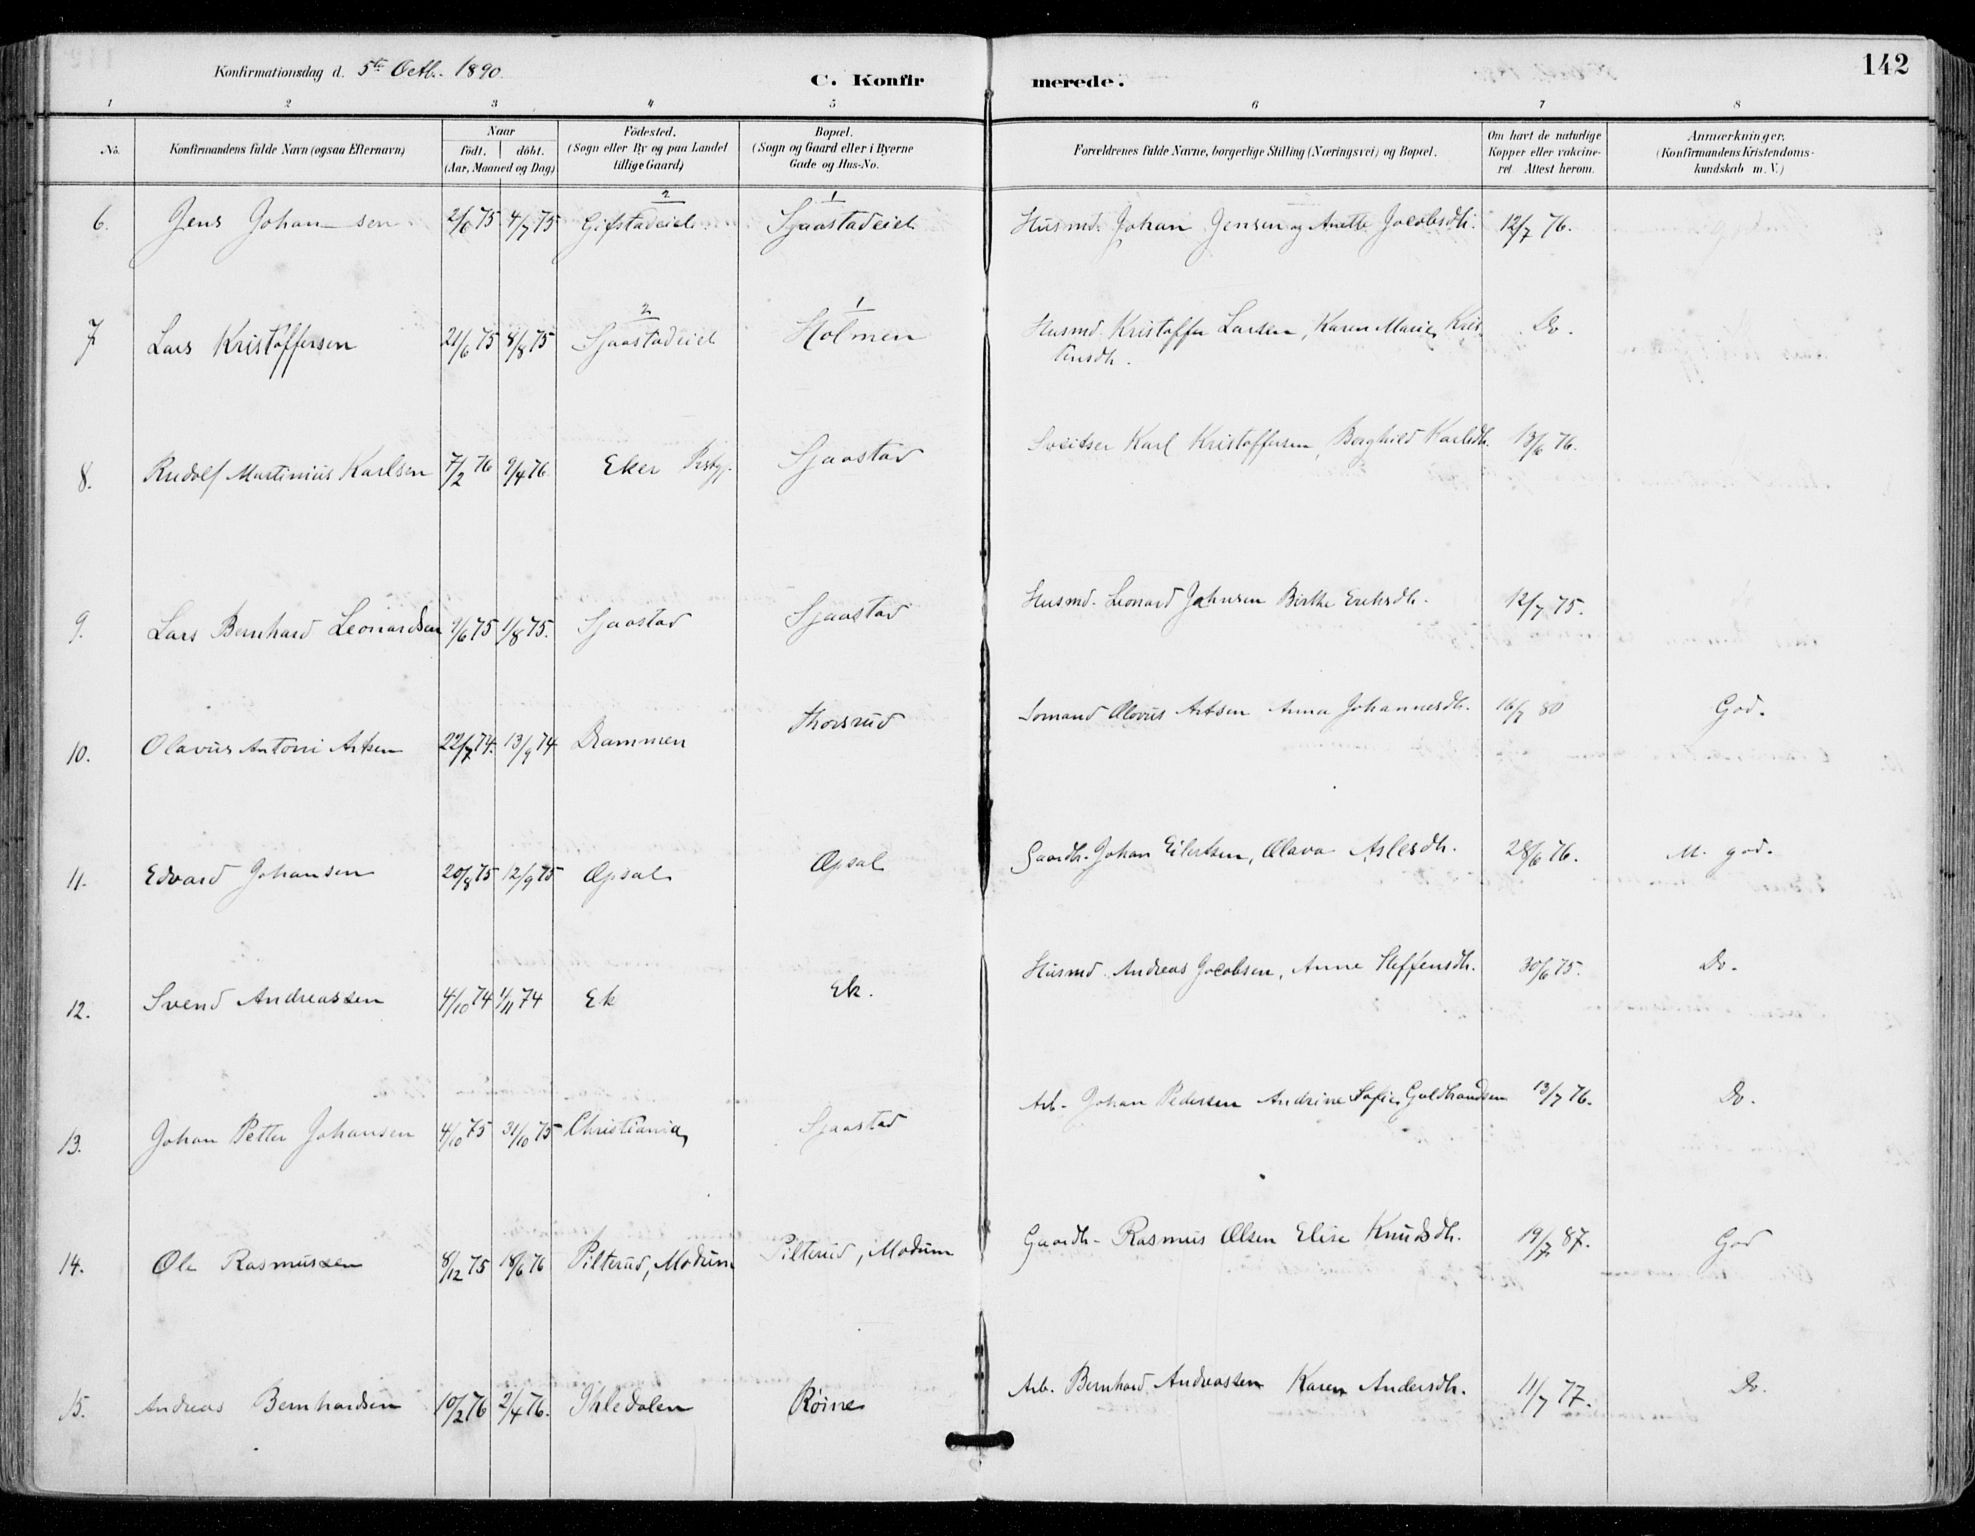 142
Konfirmationsdag d. 5te Octb. 1890.
C. Konfirmerede.
1 2 3 4 5 6 7 8
No. Konfirmandens fulde Navn (ogsaa Efternavn) Naar födt. döbt. (Aar, Maaned og Dag) Födested. (Sogn eller By og paa Landet tillige Gaard) Bopæl. (Sogn og Gaard eller i Byerne Gade og Hus-No. Forældrenes fulde Navne, borgerlige Stilling (Næringsvei) og Bopæl. Om havt de naturlige Kopper eller vakcineret. Attest herom. Anmærkninger. (Konfirmandens Kristendomskundskab m. V.)
2 1
6. Jens Johansen 2/6 75 4/7 75 Gifstadeiet Sjaastadeiet Husmd. Johan Jensen og Anette Jacobsdtr. 12/7 76.
2 1
7 Lars Kristoffersen 21/6 75 8/8 75 Sjaastadeiet Holmen Husmd. Kristoffer Larsen, Karen Marie Kris-
tensdtr. Do.
8. Rudolf Martinius Karlsen 7/2 76 9/4 76. Eker Sjaastad Sveitser Karl Kristoffersen, Berghild Karlsdtr. 13/6 76.
9. Lars Bernhard Leonardsen 1/6 75 1/8 75. Sjaastad Sjaastad Husmd. Leonard Johnsen Birthe Eriksdtr. 12/7 75.
10. Olavus Antoni Antsen 22/7 74. 13/9 74 Drammen Thorsrud Lomand Olavus Antsen Anna Johannesdtr. 16/7 80 God.
11. Edvard Johansen 20/8 75 12/9 75 Opsal Opsal Gaardb. Johan Eilertsen, Olava Aslesdtr. 28/6 76. M. god.
12. Svend Andreassen 4/10 74 1/11 74 Ek Ek. Husmd. Andreas Jacobsen, Anne Steffensdtr. 30/6 75. Do.
13. Johan Petter Johansen 4/10 75 31/10 75 Christiania Sjaastad Arb. Johan Pedersen Andrine Sofie Guldbrandsen 13/7 76. Do.
14. Ole Rasmussen 8/12 75 18/6 76 Pilterud, Modum Pilterud, Modum Gaardb. Rasmus Olsen Elise Knudsdtr. 19/7 87. God
15. Andreas Bernhardsen 10/2 76 2/4 76. Ihledalen Röine Arb. Bernhard Andreassen Karen Andersdtr. 11/7 77. Do.